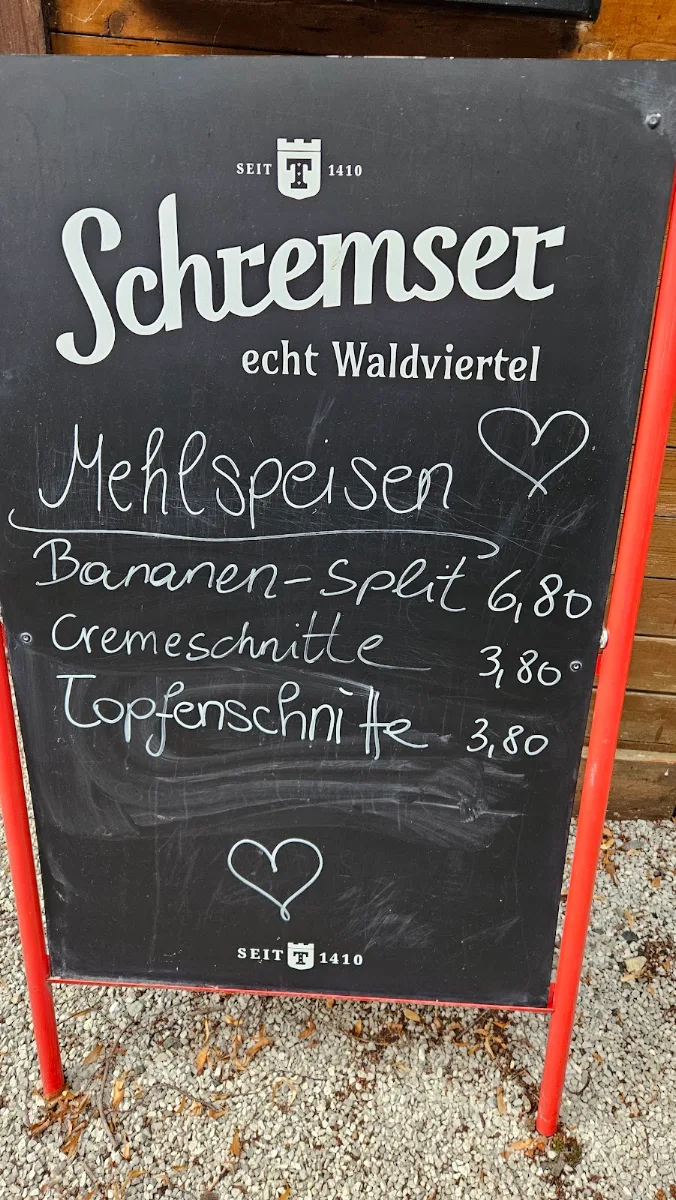 SEIT T 1410
Schremser
echt Waldviertel
Mehlspeisen
Bananen-Split 6,80
Cremeschnitte 3,80
Topfenschnitte 3,80
SEIT T 1410